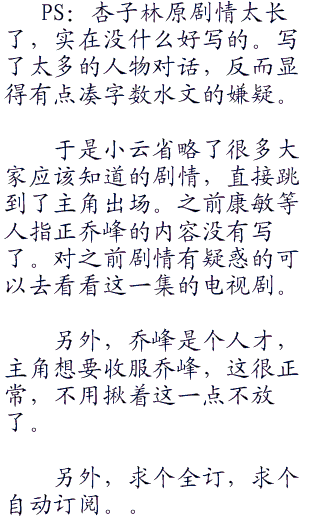 PS：杏子林原剧情太长
了，实在没什么好写的。写
了太多的人物对话，反而显
得有点凑字数水文的嫌疑。
于是小云省略了很多大
家应该知道的剧情，直接跳
到了主角出场。之前康敏等
人指正乔峰的内容没有写
了。对之前剧情有疑惑的可
以去看看这一集的电视剧。
另外，乔峰是个人才，
主角想要收服乔峰，这很正
常，不用揪着这一点不放
了。
另外，求个全订，求个
自动订阅。。